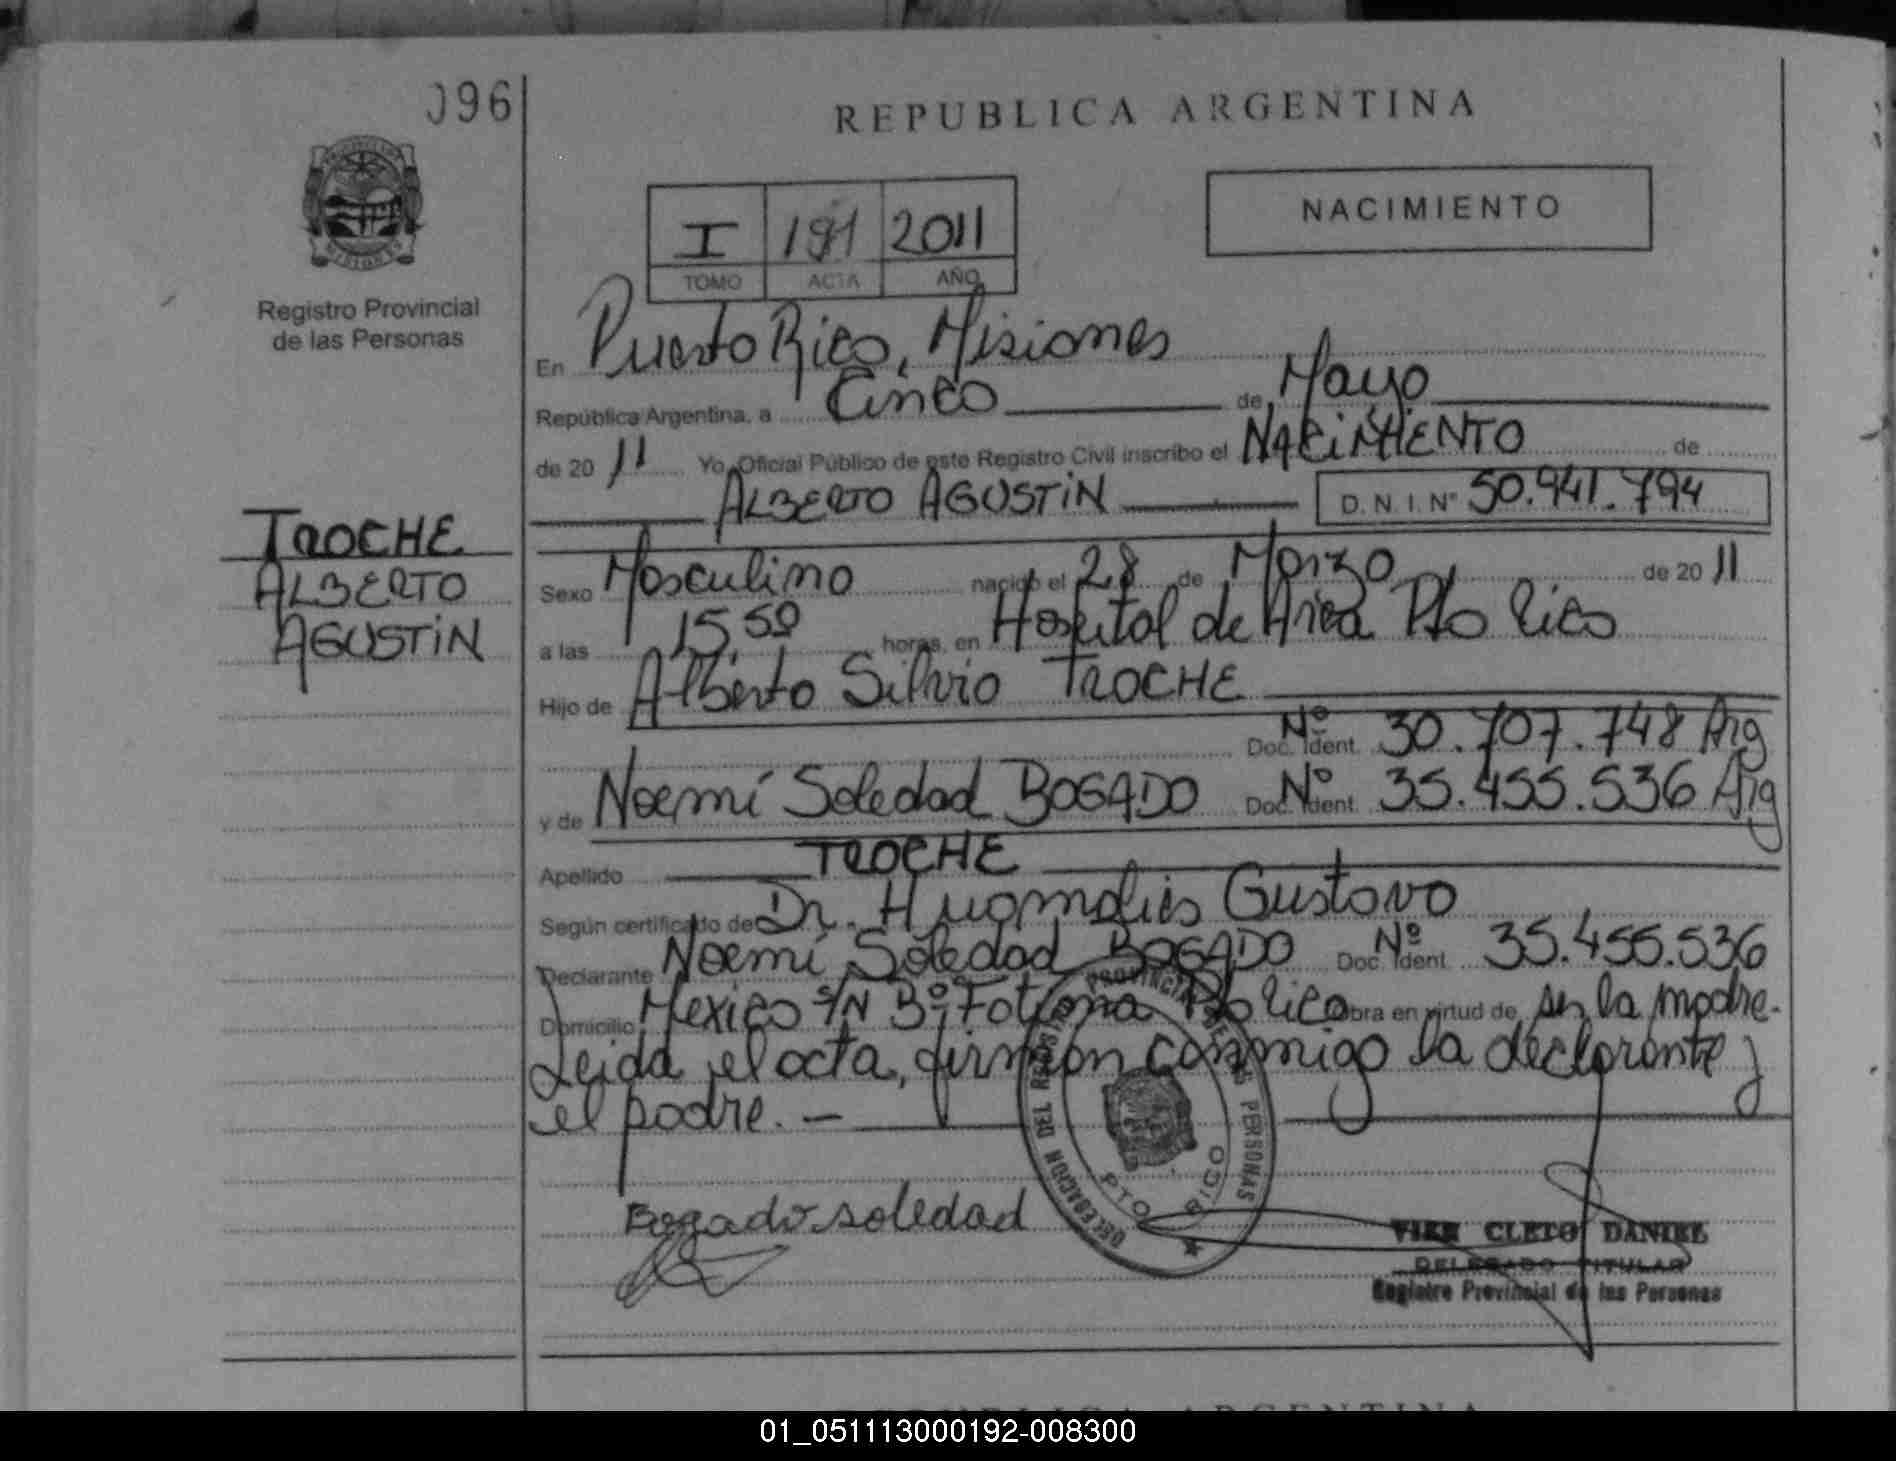 096
REPUBLICA ARGENTINA
NACIMIENTO
I 191 2011
TOMO ACTA AÑO
Registro Provincial
de las Personas
En Puerto Rico, Misiones
República Argentina, a Cinco de Mayo
de 20 11 Yo, Oficial Público de este Registro Civil inscribo el NACIMIENTO de
ALBERTO AGUSTIN D.N.I. Nº 50.941.794
TROCHE
ALBERTO
AGUSTIN
Sexo Masculino nacido el 28 de Marzo de 20 11
a las 15,50 horas, en Hospital de Area Pto Rico
Hijo de Alberto Silvio TROCHE
Doc. Ident. Nº 30.707.748 Arg
y de Noemí Soledad BOGADO Doc. Ident. Nº 35.455.536 Arg
Apellido TROCHE
Según certificado de Dr. Gustavo
Declarante Noemí Soledad BOGADO Doc. Ident. Nº 35.455.536
Domicilio Mexico S/N Bº Fátima Pto Rico obra en virtud de ser la madre.
Leida el acta, firman conmigo la declarante y
el padre. —
DELEGACION DEL REGISTRO PROVINCIAL DE LAS PERSONAS
PTO. RICO
Bogado soledad
CLETO DANIEL
DELEGADO TITULAR
Registro Provincial de las Personas
REPUBLICA ARGENTINA
01_051113000192-008300